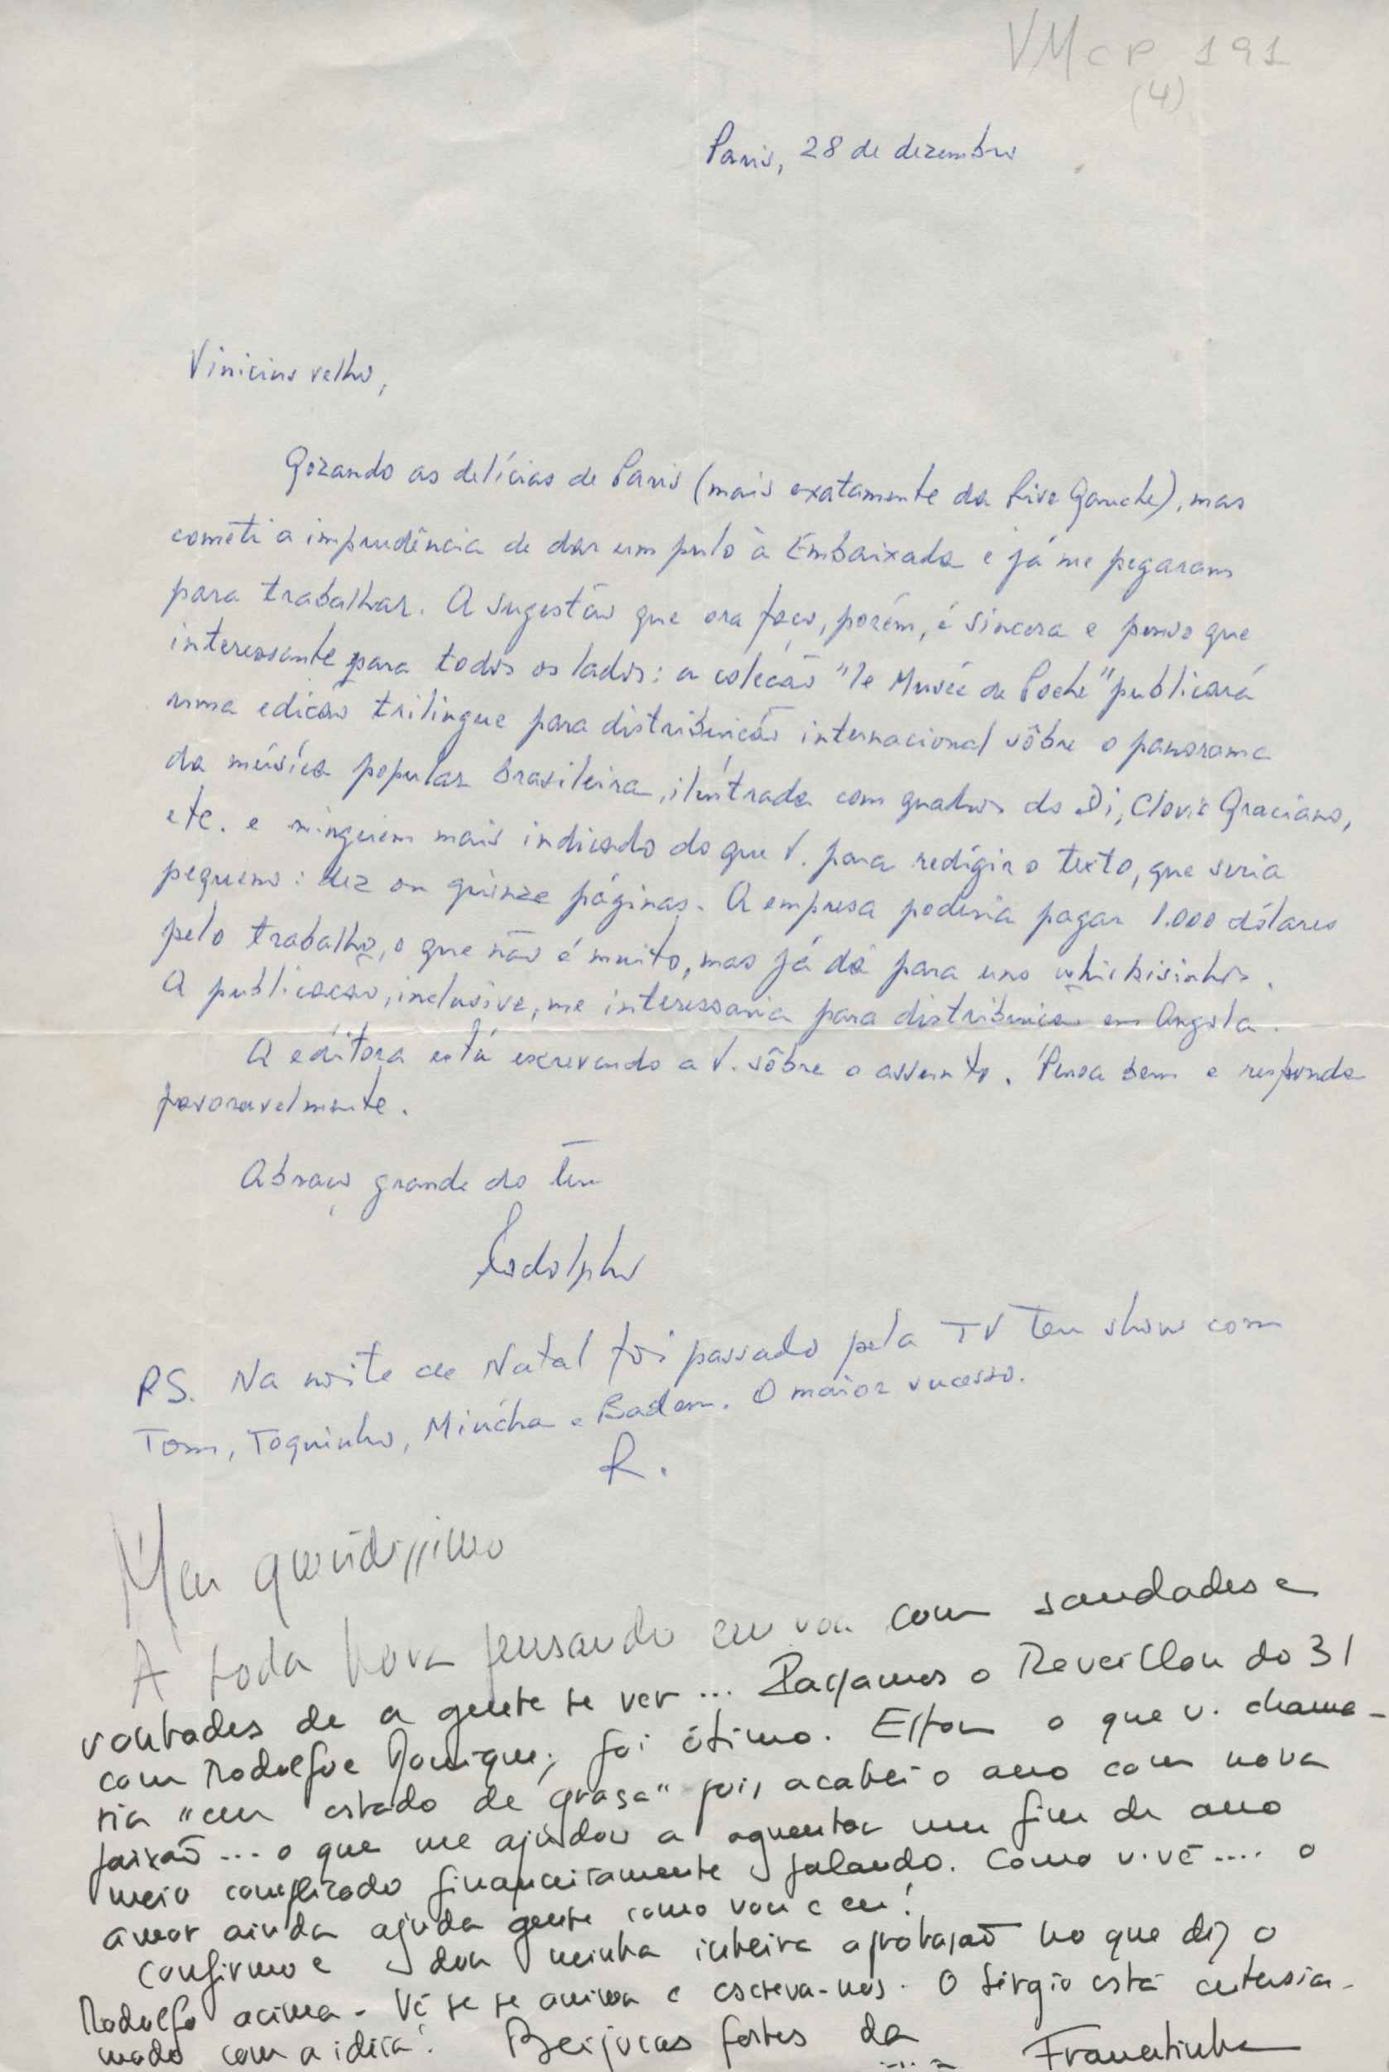 VMcp 191
(4)
Paris, 28 de dezembro
Vinicius velho,
Gozando as delícias de Paris (mais exatamente da Rive Gauche), mas
cometi a imprudência de dar um pulo à Embaixada e já me pegaram
para trabalhar. A sugestão que ora faço, porém, é sincera e penso que
interessante para todos os lados: a coleção "le Musée de Poche" publicará
uma edição trilingue para distribuição internacional sôbre o panorama
da música popular brasileira, ilustrada com quadros do Di, Clovis Graciano,
etc. e ninguem mais indicado do que V. para redigir o texto, que seria
pequeno: dez ou quinze páginas. A empresa poderia pagar 1.000 dólares
pelo trabalho, o que não é muito, mas já dá para uns whiskisinhos.
A publicação, inclusive, me interessaria para distribuição em Angola.
A editora está escrevendo a V. sôbre o assunto. Pensa bem e responda
favoravelmente.
Abraço grande do teu
Rodolpho
PS. Na noite de Natal foi passado pela TV teu show com
Tom, Toquinho, Miúcha e Baden. O maior sucesso.
R.
Meu queridissimo
A toda hora pensando em você com saudades e
vontades de a gente se ver ... Passamos o Reveillon do 31
com Rodolfo e Monique, foi ótimo. Estou o que v. chama-
ria "em estado de graça" pois acabei o ano com nova
paixão ... o que me ajudou a aguentar um fim de ano
meio complicado financeiramente falando. Como v. vê .... o
amor ainda ajuda gente como você e eu!
Confirmo e dou minha inteira aprobação no que diz o
Rodolfo acima. Vê se se anima e escreva-nos. O Sérgio está entusias-
mado com a idéia! Beijocas fortes da